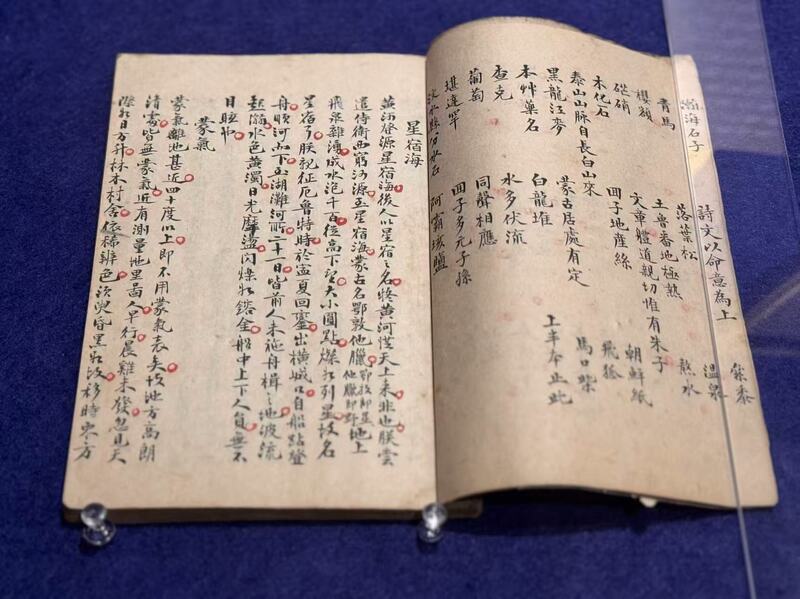 瀚海石子 詩文以命意為上
落葉松 粂黍
青馬 土魯番地極熱 溫泉
櫻額 文章體道親切惟有朱子 熬水
硇硝 回子地產絲 朝鮮紙
木化石 飛狐
泰山山脈自長白山來 蒙古居處有定 馬口柴
黑龍江麥 白龍堆 上半本止此
本艸藥名 水多伏流
查克 同聲相應
葡萄 回子多元子孫
堪達罕 阿霸垓鹽
星宿海
黃河發源星宿海後人以星宿之名將黃河從天上來非也朕雲
遣侍衛西窮河源至星宿海蒙古名鄂敦他臘鄂敦即星他臘即野地上
飛泉雜湧成水泡千百從高下望大小圓點燦如列星故名
星宿焉朕親征厄魯特時於寧夏回鑾出橫城口自船站登
舟順河而下至湖灘河所二十一日皆前人未施舟楫之地波流
水色黃濁日光摩盪閃爍如鎔金船中上下人員無不
目眩
蒙氣
蒙氣離地甚近四十度以上即不用蒙氣表矣故地方高朗
清處皆無蒙氣近有測量地里啚人早行晨雞未發忽見天
際如日方升林木村舍依稀辨色須臾昏黑如故移時東方